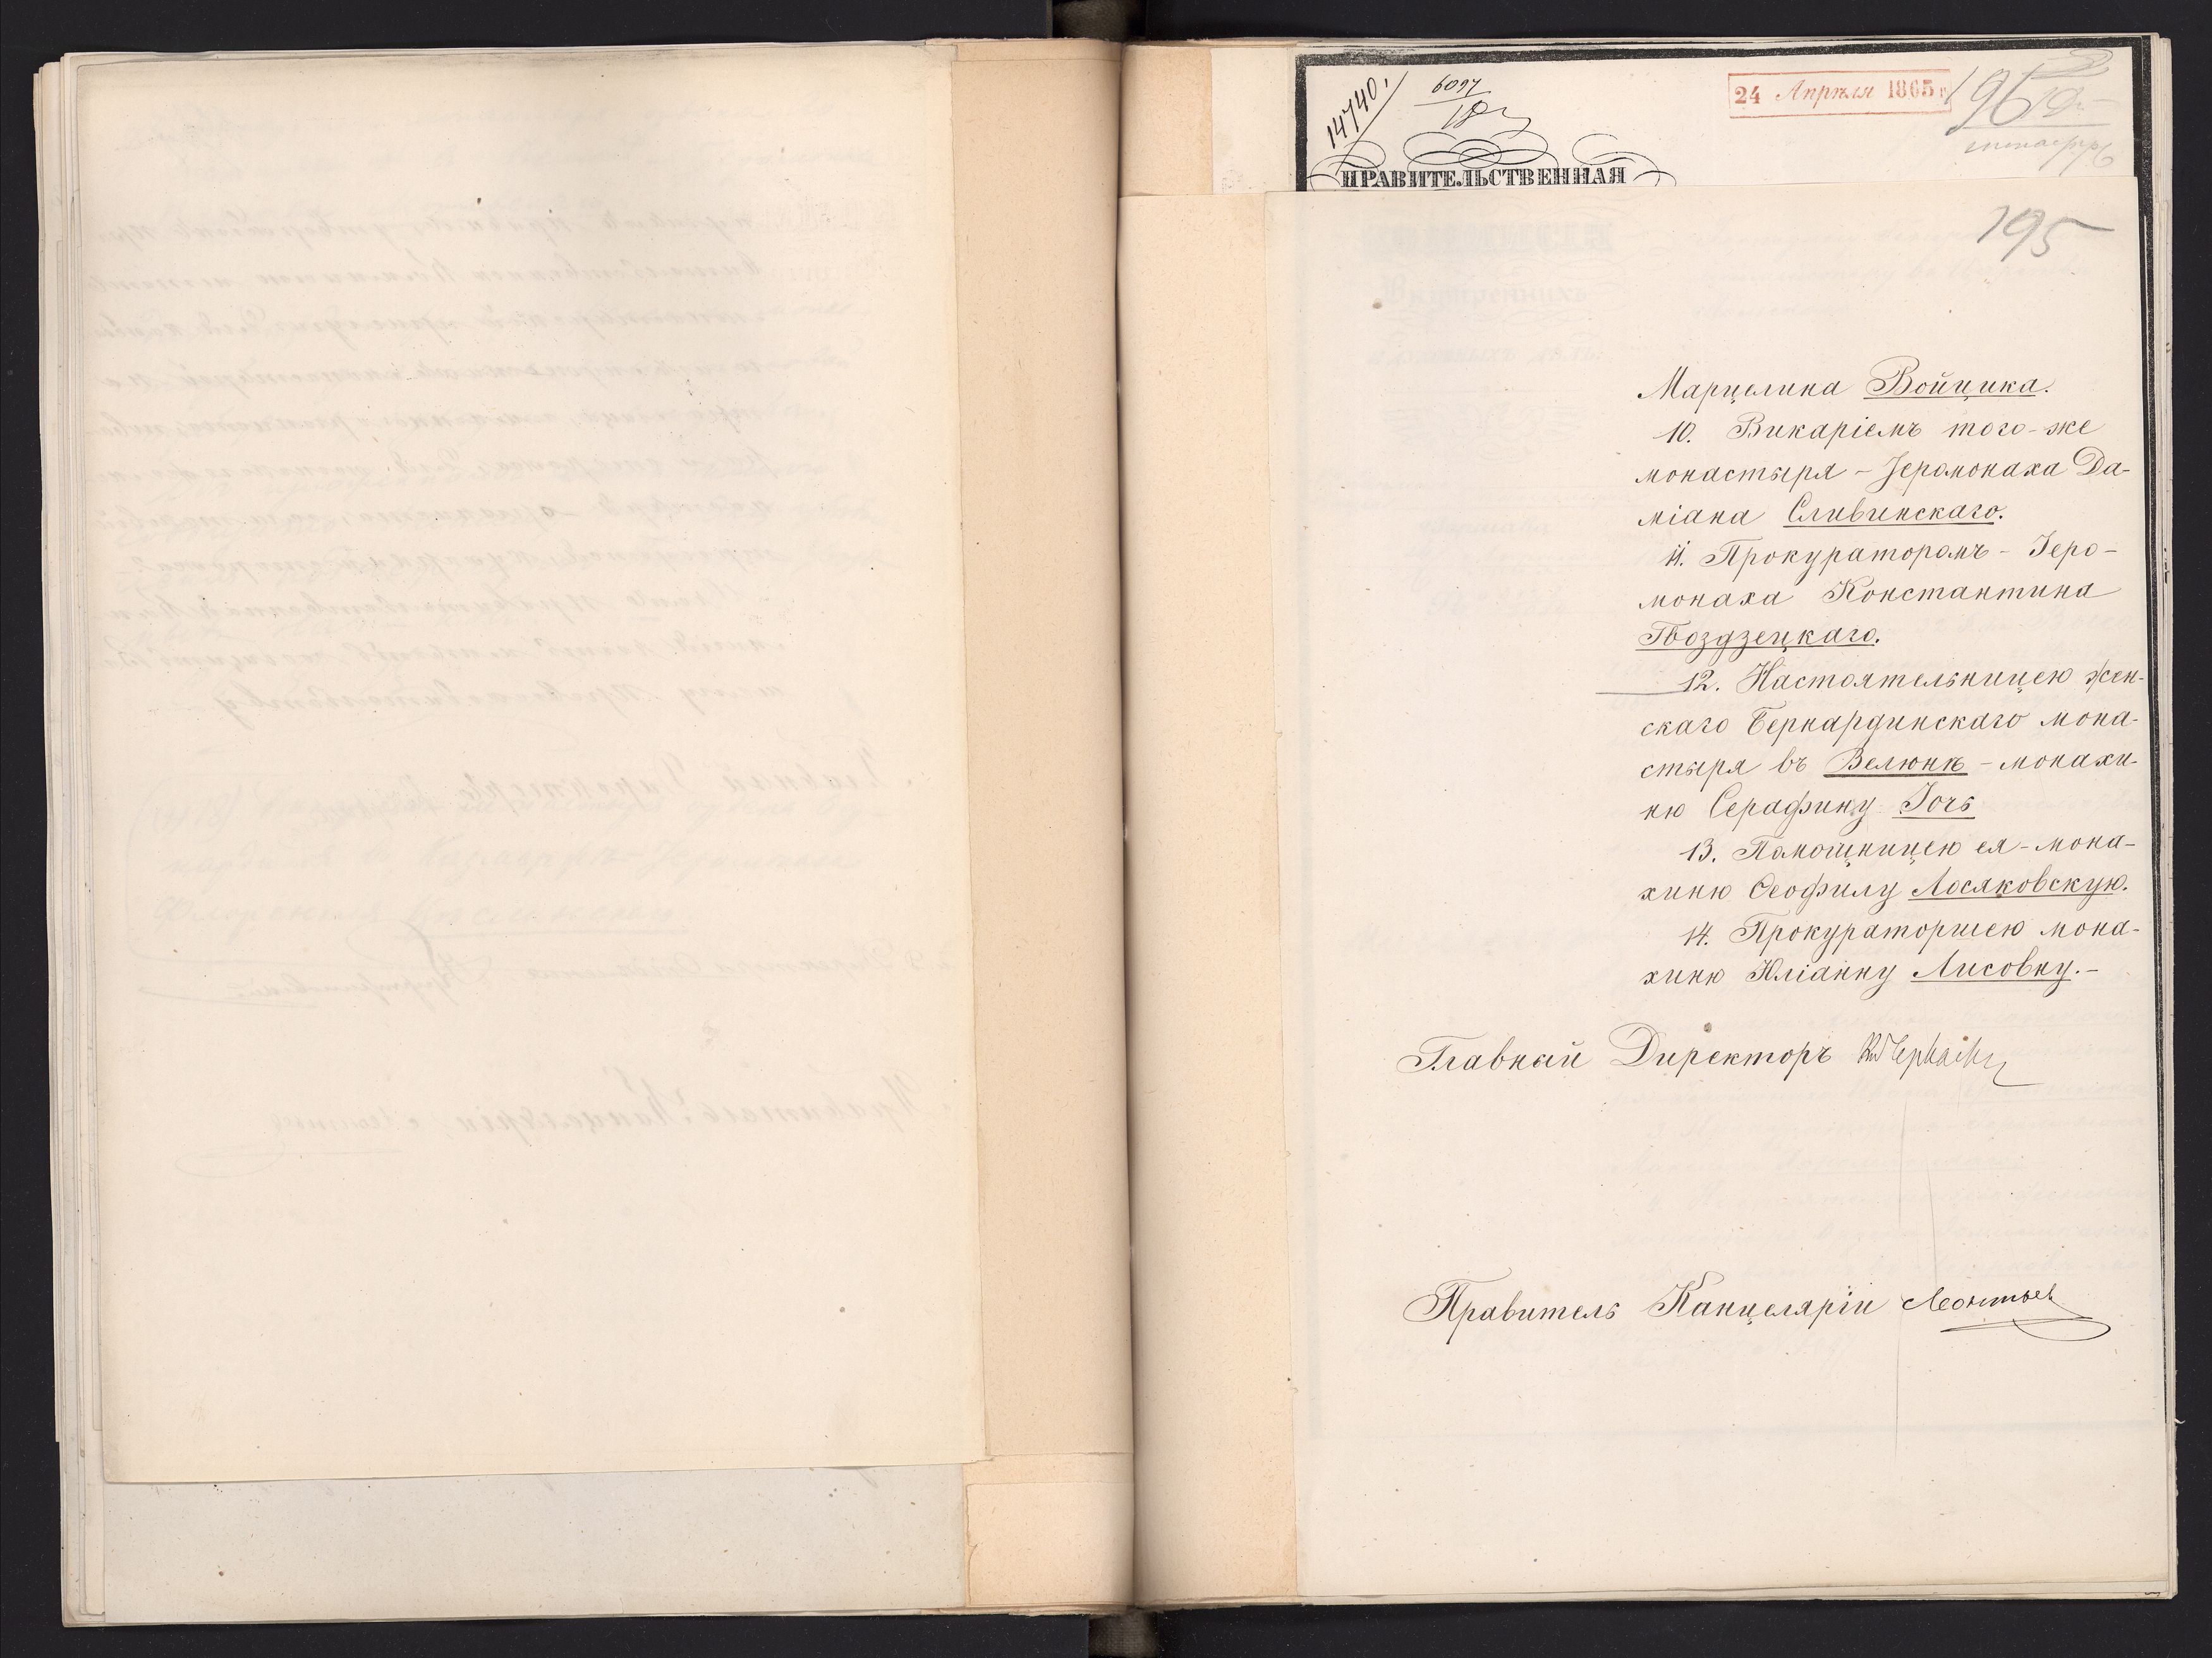 14740.
6097
24 Апрѣля 1865 г.
196
ПРАВИТЕЛЬСТВЕННАЯ
195
Марцелина Войцика.
10. Викаріемъ того-же
монастыря - Іеромонаха Да-
міана Сливинскаго.
11. Прокураторомъ - Іеро-
монаха Константина
Гвоздзецкаго.
12. Настоятельницею жен-
скаго Бернардинскаго мона-
стыря въ Велюнѣ - монахи-
ню Серафину Іочь
13. Помощницею ея - мона-
хиню Ѳеофилу Лосяковскую.
14. Прокураторшею мона-
хиню Юліанну Лисовну. -
Главный Директоръ Кн Черкаскій
Правитель Канцеляріи Леонтьев